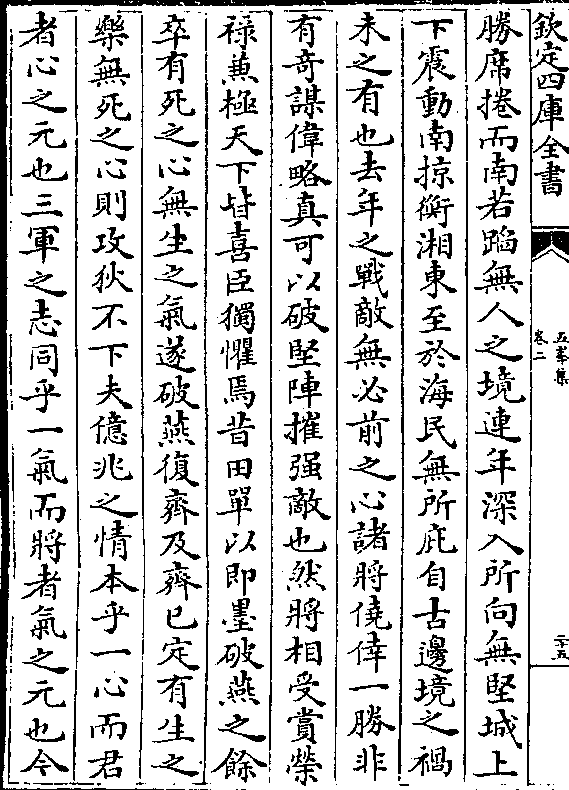 欽定四庫全書
五峯集
卷二
二十五
勝席捲而南若蹈無人之境連年深入所向無堅城上
下震動南掠衡湘東至於海民無所庇自古邊境之禍
未之有也去年之戰敵無必前之心諸將僥倖一勝非
有奇謀偉略真可以破堅陣摧强敵也然將相受賞榮
祿兼極天下皆喜臣獨懼焉昔田單以即墨破燕之餘
卒有死之心無生之氣遂破燕復齊及齊已定有生之
樂無死之心則攻狄不下夫億兆之情本乎一心而君
者心之元也三軍之志同乎一氣而將者氣之元也今